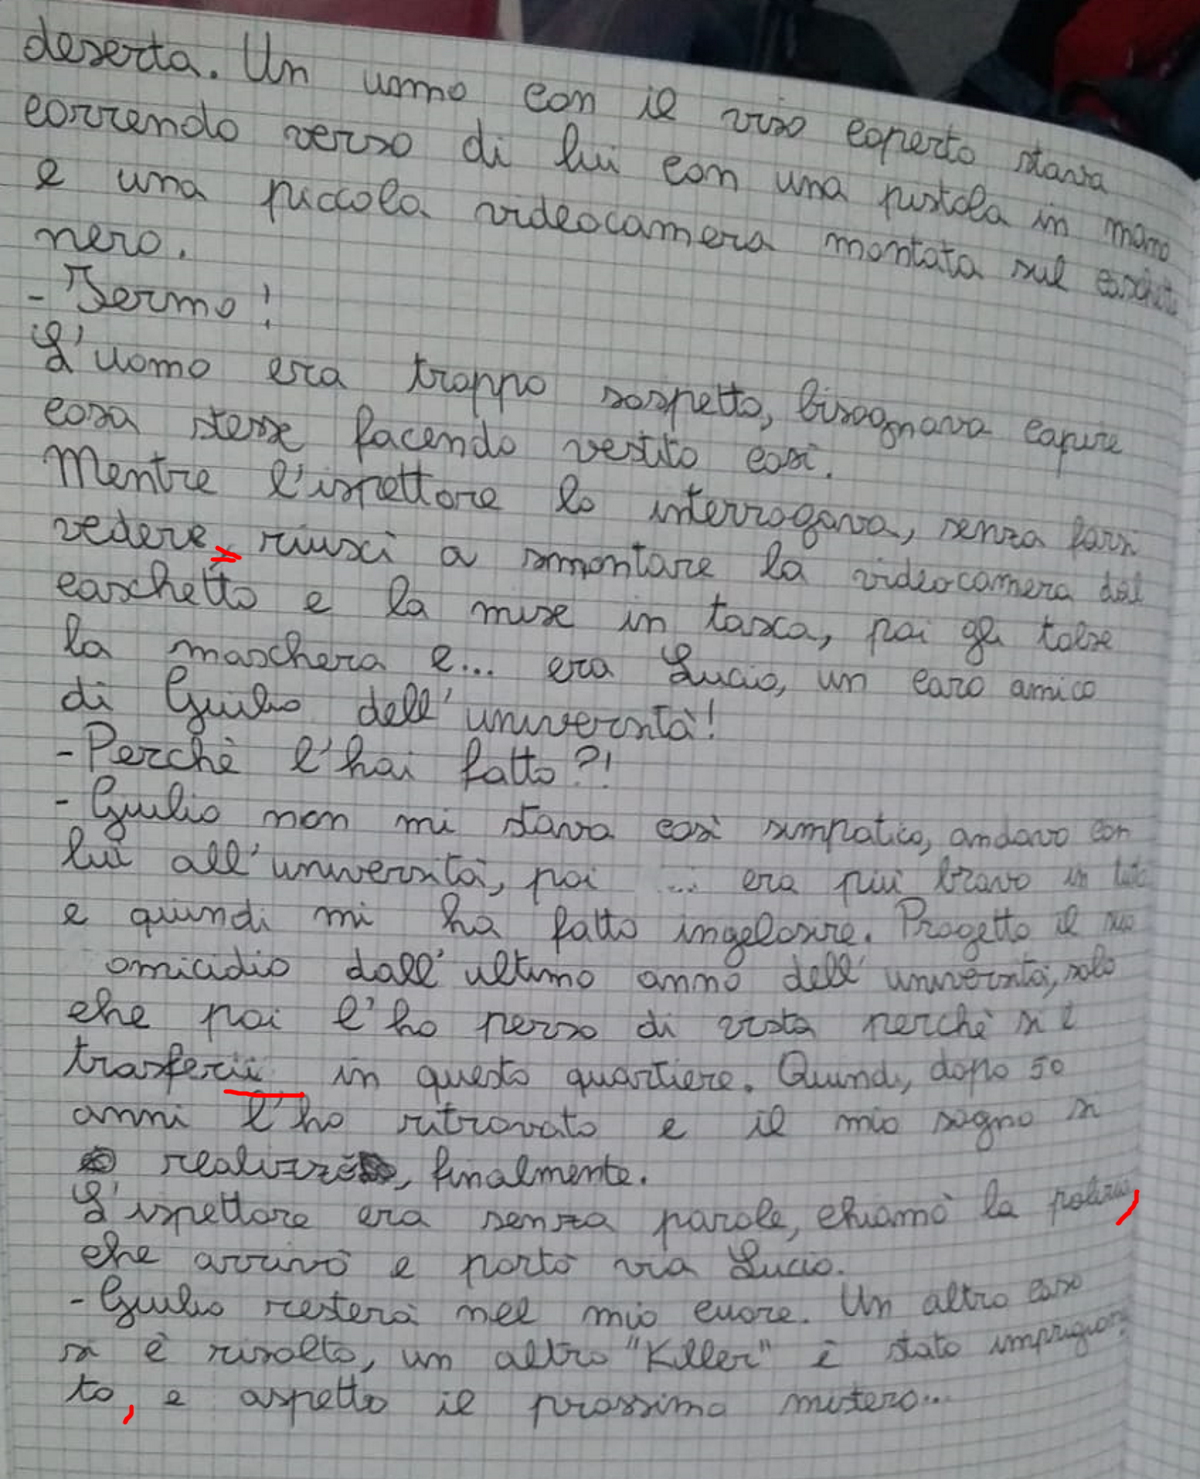 deserta. Un uomo con il viso coperto stava
correndo verso di lui con una pistola in mano
e una piccola videocamera montata sul caschetto
nero.
- Fermo!
L'uomo era troppo sospetto, bisognava capire
cosa stesse facendo vestito così.
Mentre l'ispettore lo interrogava, senza farsi
vedere, riuscì a smontare la videocamera dal
caschetto e la mise in tasca, poi gli tolse
la maschera e... era Lucio, un caro amico
di Giulio dell'università!
- Perchè l'hai fatto?!
- Giulio non mi stava così simpatico, andavo con
lui all'università, poi ... era più bravo in
e quindi mi ha fatto ingelosire. Progetto il suo
omicidio dall'ultimo anno dell'università, solo
che poi l'ho perso di vista perchè si è
trasferii in questo quartiere. Quindi, dopo 50
anni l'ho ritrovato e il mio sogno si
realizzò, finalmente.
L'ispettore era senza parole, chiamò la polizia,
che arrivò e portò via Lucio.
- Giulio resterà nel mio cuore. Un altro caso
si è risolto, un altro "Killer" è stato imprigiona
to, e aspetto il prossimo mistero...